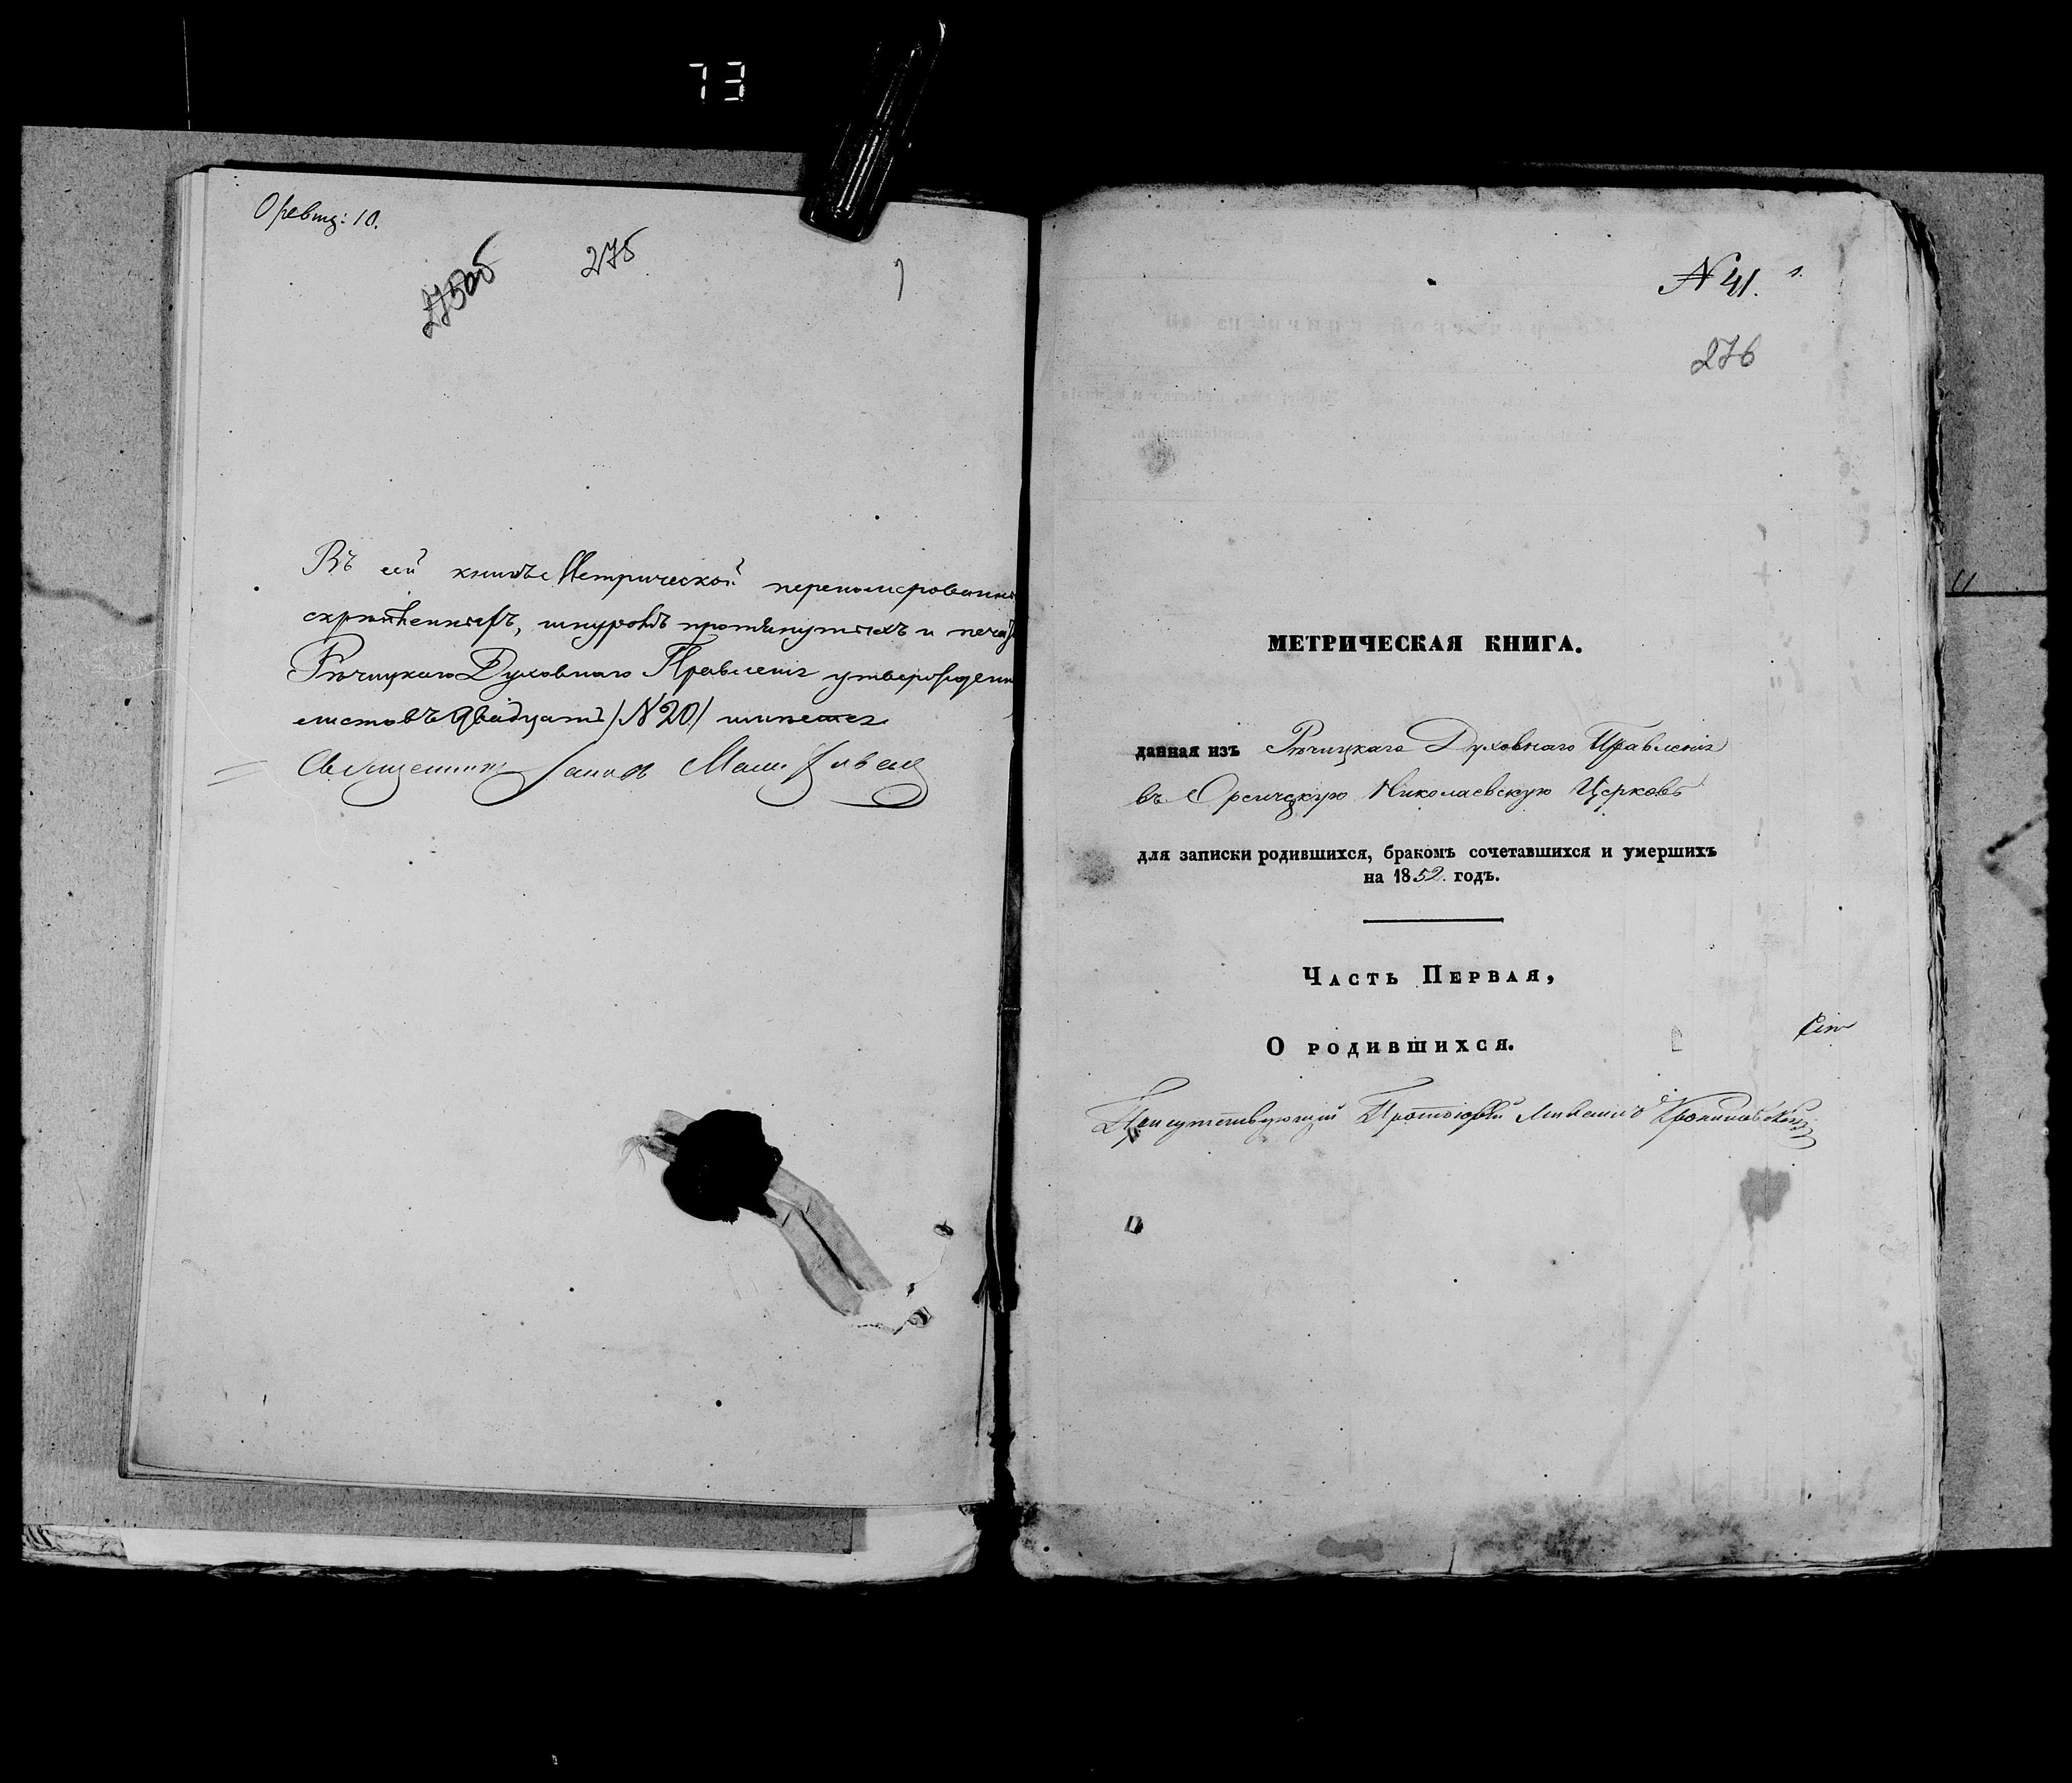 73
275
275об
Въ сей книгѣ Метрической перенумерованны
скрѣпленныхъ, шнуромъ протянутыхъ и печа
Рѣчицкаго Духовнаго Правленія утвержден
листовъ двадцать /N 20/
Священникъ
N 41.
276
МЕТРИЧЕСКАЯ КНИГА.
данная изъ Рѣчицкаго Духовнаго Правленія
въ Николаевскую Церковь
для записки родившихся, бракомъ сочетавшихся и умершихъ
на 1852. годъ.
ЧАСТЬ ПЕРВАЯ,
О РОДИВШИХСЯ.
Присутствующій Протоіерей